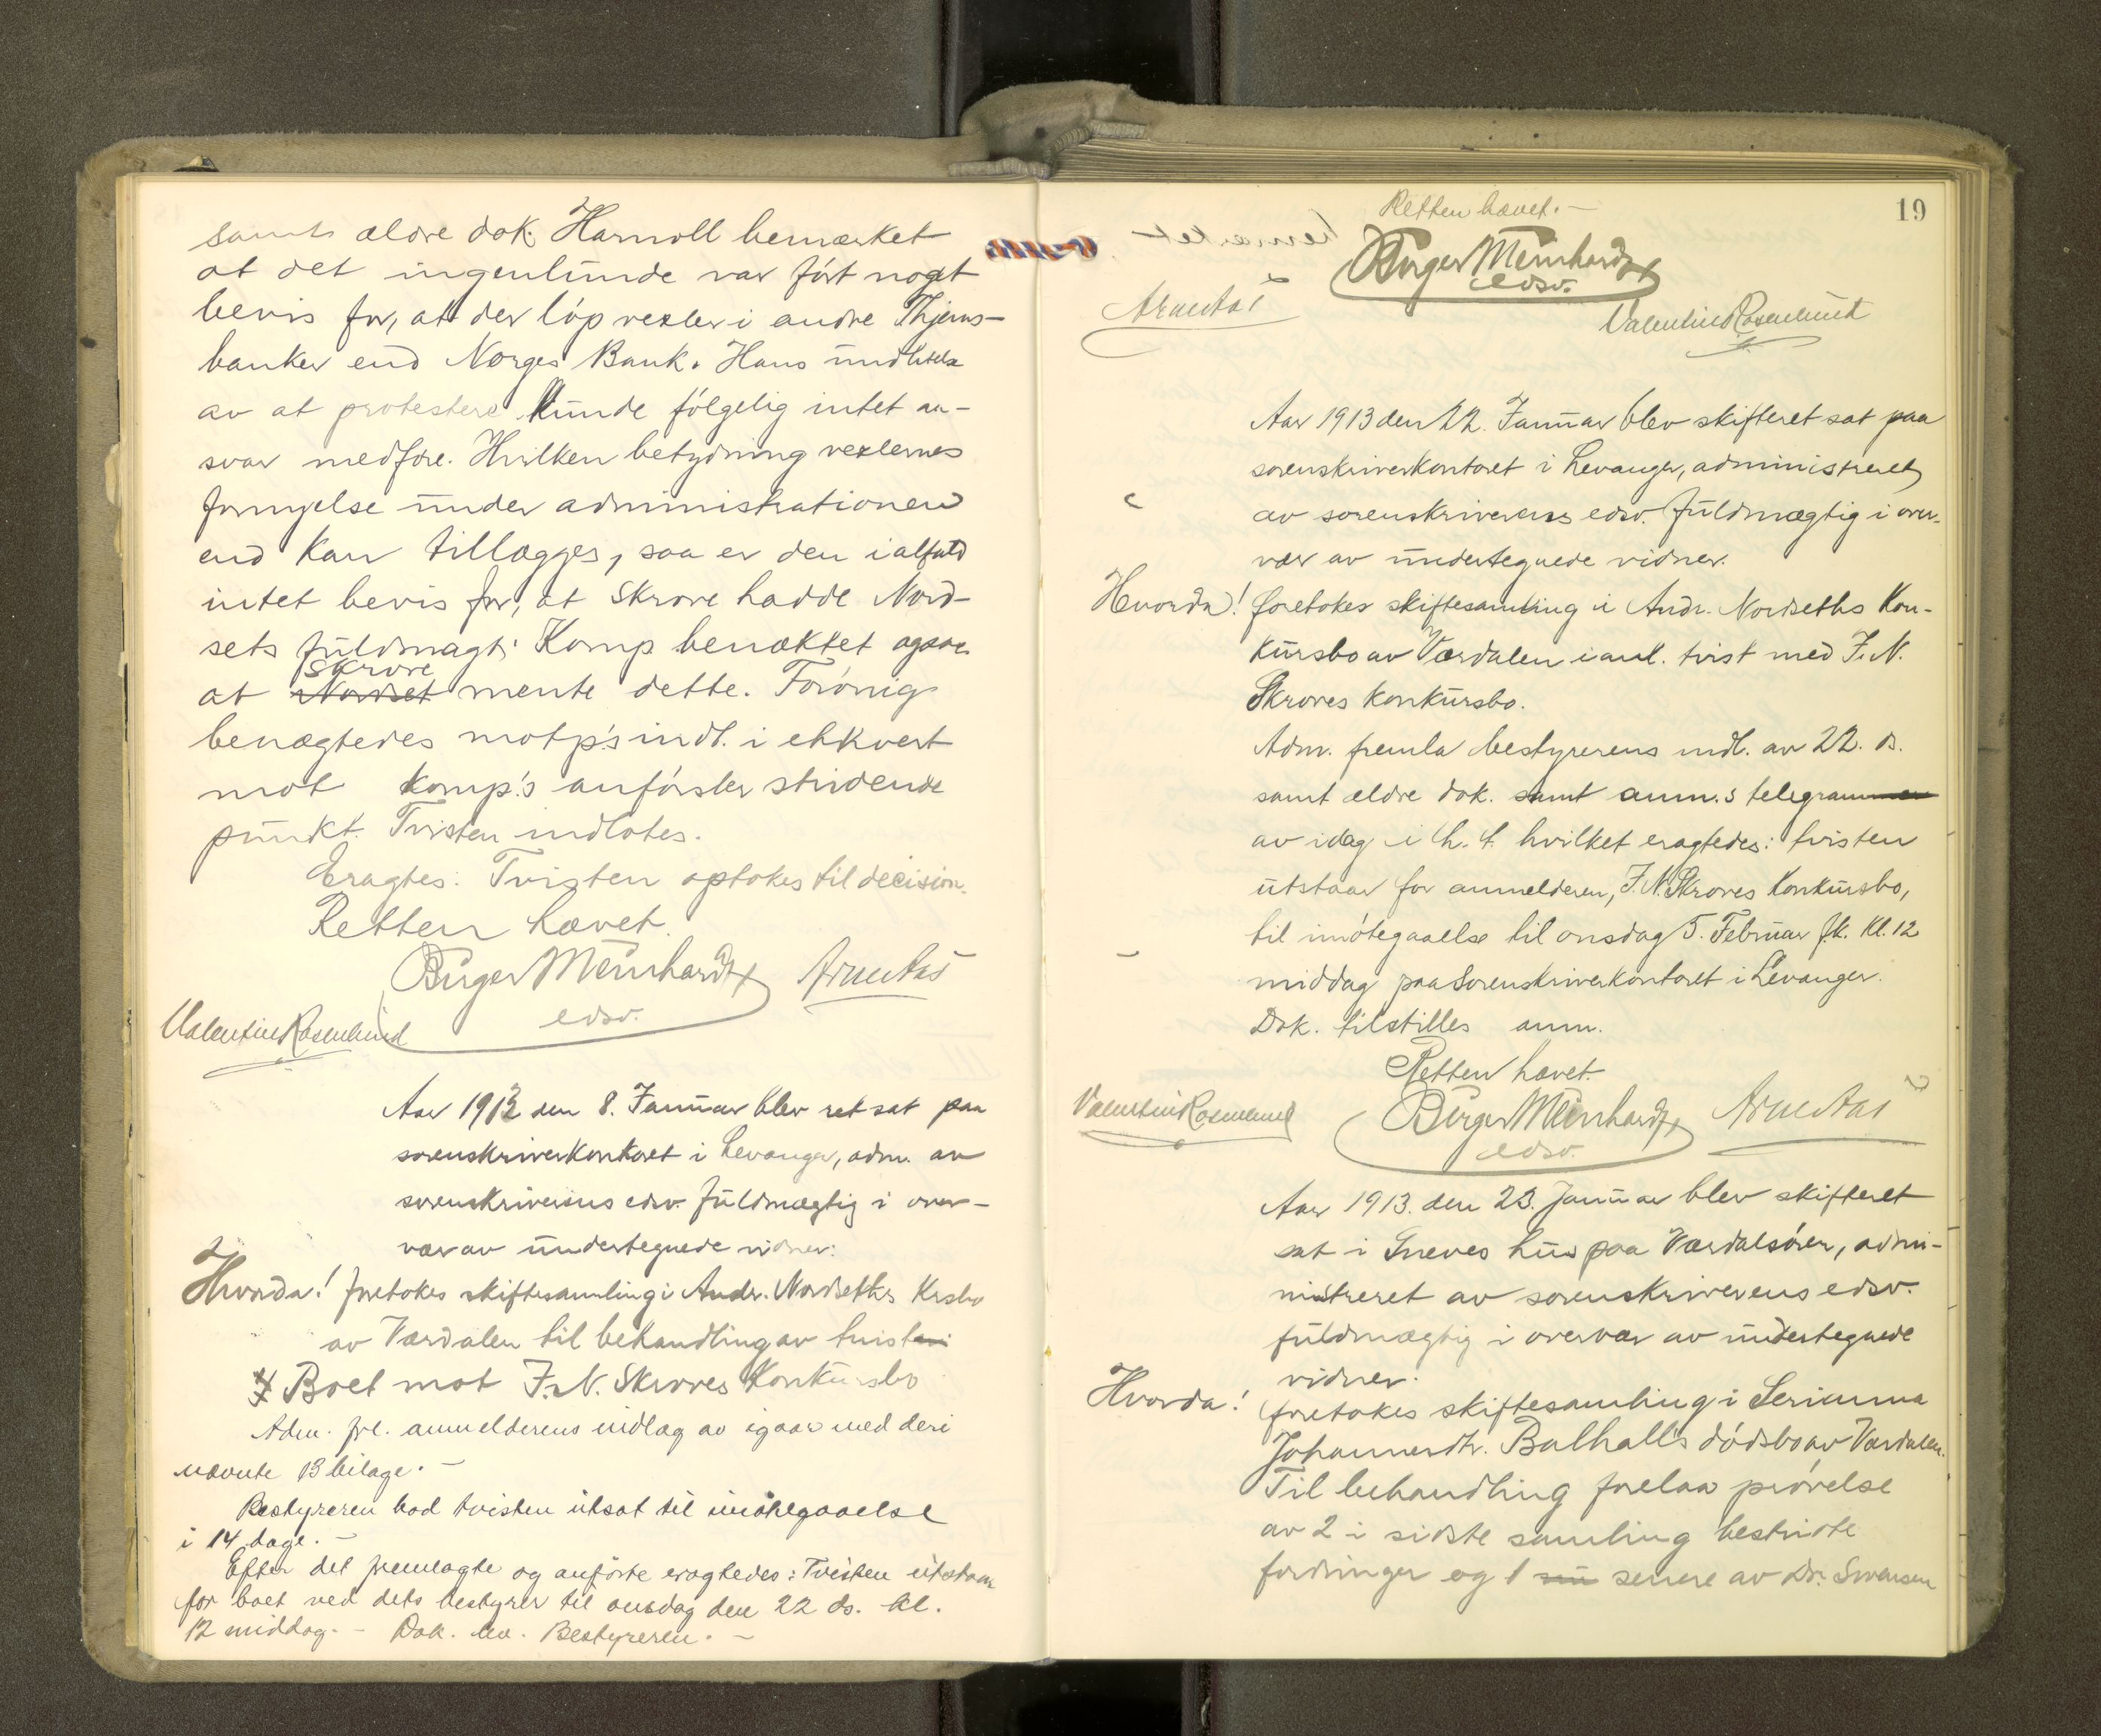 samt ældre dok. Harnoll bemærket
at det ingenlunde var ført noget
bevis for, at der løp vexler i andre Thjems-
banker end Norges Bank. Hans undlatelse
av at protestere kunde følgelig intet an-
svar medføre. Hvilken betydning vexlernes
fornyelse under administrationen
end kan tillægges, saa er den ialfald
intet bevis for, at Skrove hadde Nord-
sets fuldmagt. Komp. benæktet ogsaa
at Nordset Skrove mente dette. Forøvrig
benægtedes motp's indl. i ethvert
mot komp.'s anførsler stridende
punkt. Tvisten indlotes.
Eragtes: Tvisten optokes til decision.
Retten hævet.
Birger Meinhardt Arne Aas
edsv.
Valentin Rosenlund
Aar 1913 den 8. Januar blev ret sat paa
sorenskriverkontoret i Levanger, adm. av
sorenskriverens edsv. fuldmægtig i over-
vær av undertegnede vidner:
Hvorda! foretokes skiftesamling i Andr. Nordseths Krsbo
av Værdalen til behandling av tvisten
Boet mot J. N. Skroves Konkursbo
Adm. frl. anmelderens indlæg av igaar med deri
nævnte 13 bilage. -
Bestyreren bad tvisten utsat til imøtegaaelse
i 14 dage. -
Efter det fremlagte og anførte eragtedes: Tvisten utstaar
for boet ved dets bestyrer til onsdag den 22 ds. kl.
12 middag. - Dok. lev. Bestyreren. -
19
Retten hævet. -
Birger Meinhardt
edsv.
Arne Aas
Valentin Rosenlund
Aar 1913 den 22. Januar blev skifteret sat paa
sorenskriverkontoret i Levanger, administreret
av sorenskriverens edsv. fuldmægtig i over-
vær av undertegnede vidner.
Hvorda! foretokes skiftesamling i Andr. Nordseths Kon-
kursbo av Værdalen i anl. tvist med J. N.
Skroves konkursbo.
Adm. fremla bestyrerens indl. av 22. ds.
samt ældre dok. samt anm.s telegrammer
av idag i h. t. hvilket eragtedes: tvisten
utstaar for anmelderen, J. N. Skroves Konkursbo,
til imøtegaaelse til onsdag 5. Februar fk. kl. 12
middag paa Sorenskriverkontoret i Levanger.
Dok. tilstilles anm.
Retten hævet.
Valentin Rosenlund Birger Meinhardt Arne Aas
edsv.
Aar 1913. den 23. Januar blev skifteret
sat i Sneves hus paa Værdalsøren, admi-
nistreret av sorenskriverens edsv.
fuldmægtig i overvær av undertegnede
vidner.
Hvorda! foretokes skiftesamling i Serianna
Johannesdtr. Balhalls dødsbo av Værdalen.
Til behandling forelaa prøvelse
av 2 i sidste samling bestridte
fordringer og 1 senere av Dr. Svensen